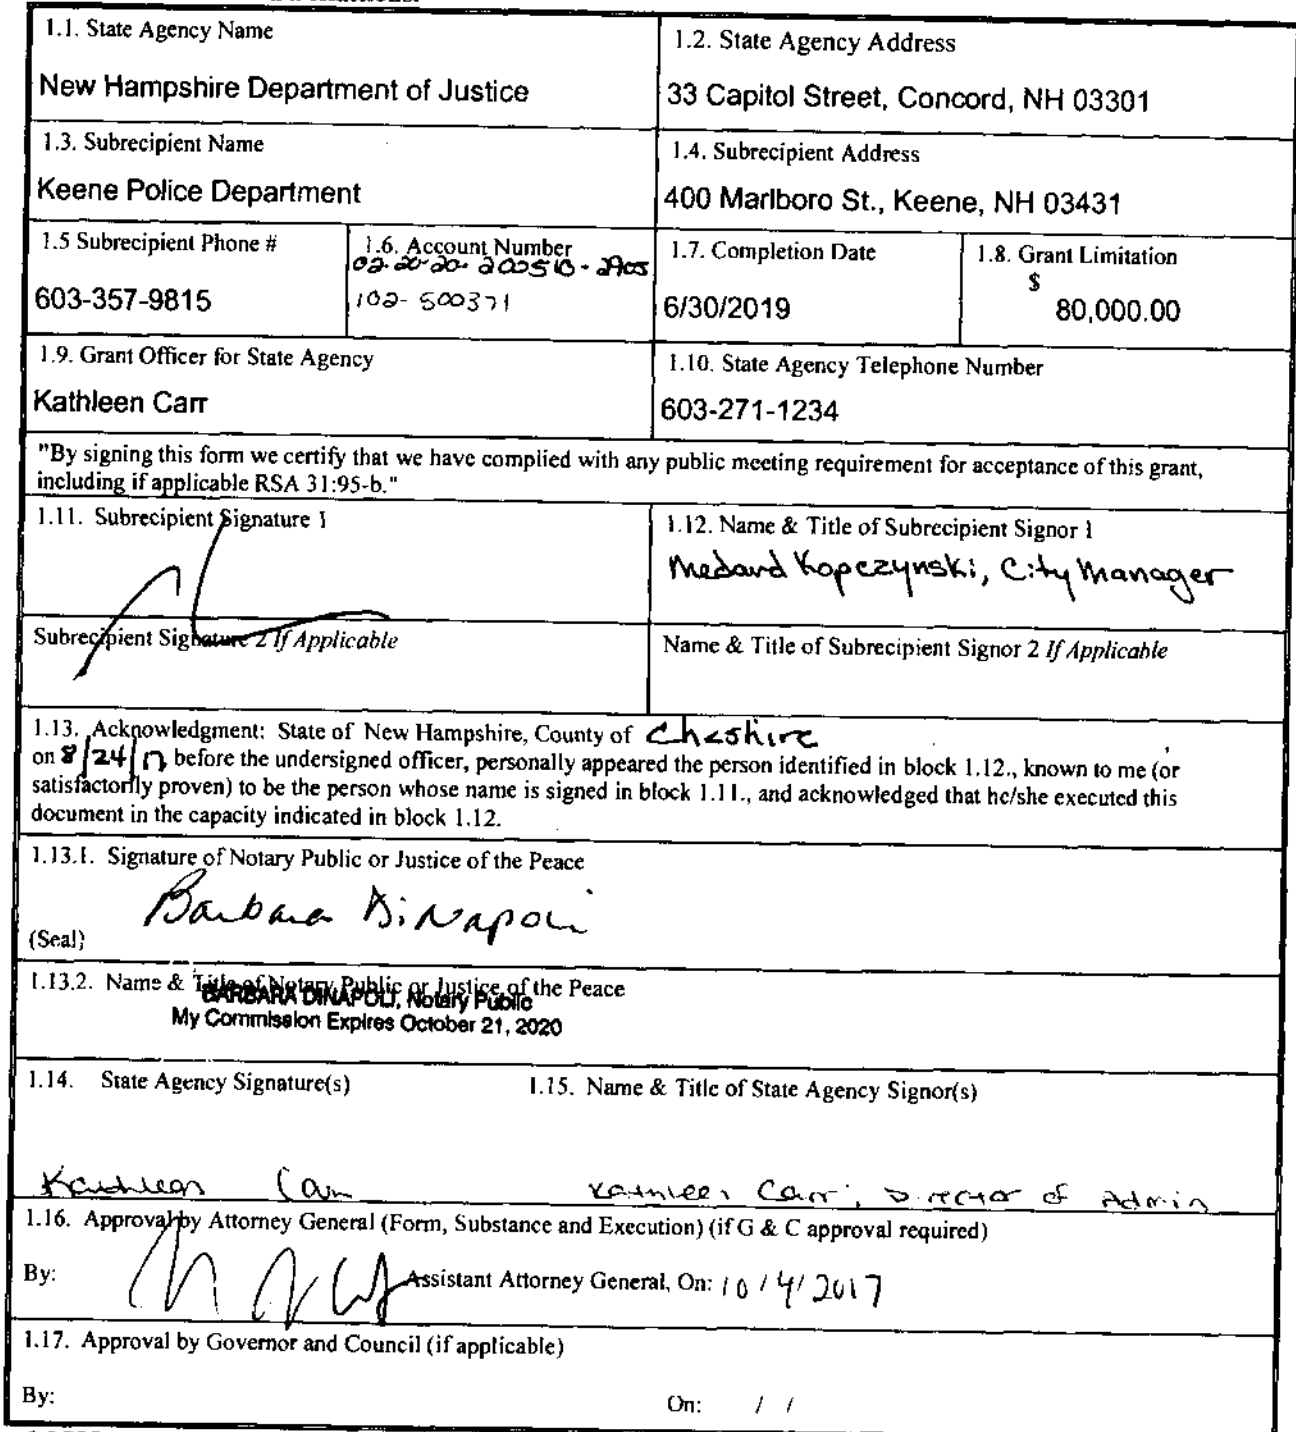 1.1. State Agency Name
New Hampshire Department of Justice
1.2. State Agency Address
33 Capitol Street, Concord, NH 03301
1.3. Subrecipient Name
Keene Police Department
1.4. Subrecipient Address
400 Marlboro St., Keene, NH 03431
1.5 Subrecipient Phone #
603-357-9815
1.6. Account Number
02-20-20-200510-2905
102-500371
1.7. Completion Date
6/30/2019
1.8. Grant Limitation
$
80,000.00
1.9. Grant Officer for State Agency
Kathleen Carr
1.10. State Agency Telephone Number
603-271-1234
"By signing this form we certify that we have complied with any public meeting requirement for acceptance of this grant,
including if applicable RSA 31:95-b."
1.11. Subrecipient Signature 1
1.12. Name & Title of Subrecipient Signor 1
Medard Kopczynski, City Manager
Subrecipient Signature 2 If Applicable
Name & Title of Subrecipient Signor 2 If Applicable
1.13. Acknowledgment: State of New Hampshire, County of Cheshire
on 8/24/17, before the undersigned officer, personally appeared the person identified in block 1.12., known to me (or
satisfactorily proven) to be the person whose name is signed in block 1.11., and acknowledged that he/she executed this
document in the capacity indicated in block 1.12.
1.13.1. Signature of Notary Public or Justice of the Peace
Barbara DiNapoli
(Seal)
1.13.2. Name & Title of Notary Public or Justice of the Peace
BARBARA DINAPOLI, Notary Public
My Commission Expires October 21, 2020
1.14. State Agency Signature(s)
1.15. Name & Title of State Agency Signor(s)
Kathleen Carr
Kathleen Carr, Director of Admin
1.16. Approval by Attorney General (Form, Substance and Execution) (if G & C approval required)
By: Assistant Attorney General, On: 10/4/2017
1.17. Approval by Governor and Council (if applicable)
By: On: / /